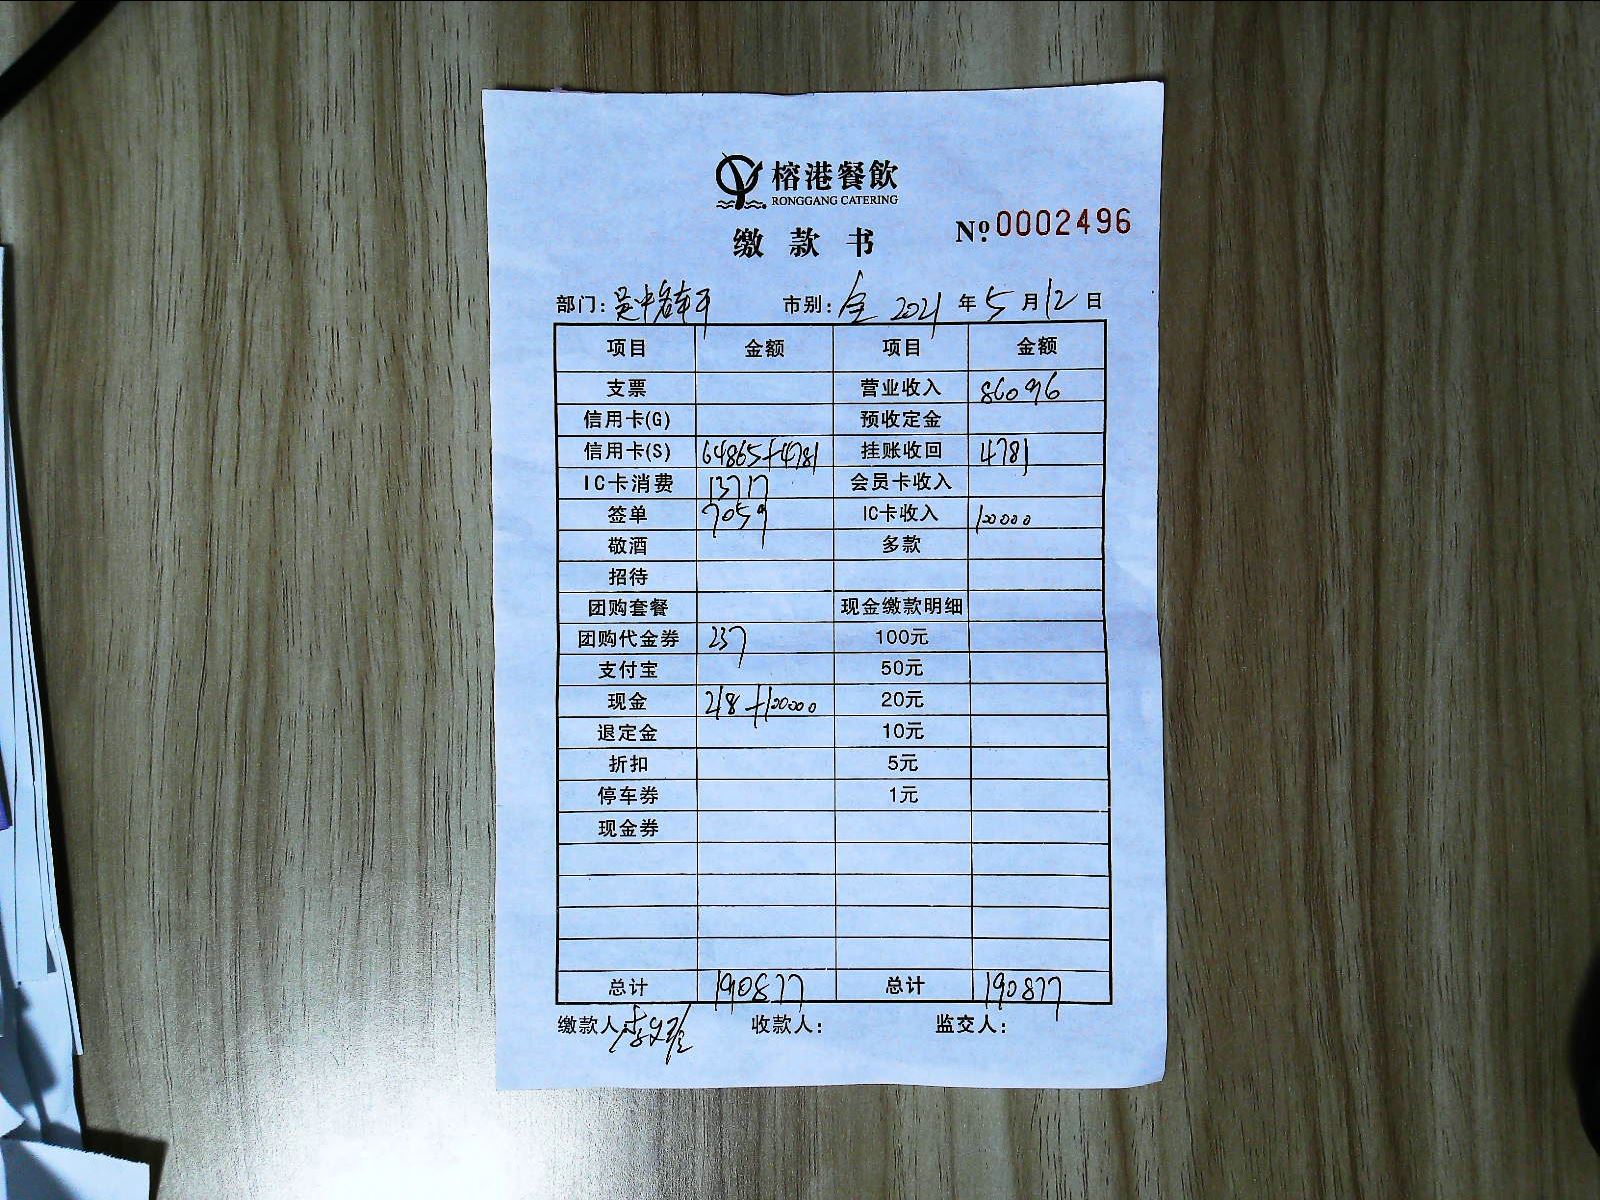 榕港餐飲
RONGGANG CATERING
缴款书 №:0002496
部门: 吴中 市别: 全 2021 年 5 月 12 日
项目 金额 项目 金额
支票 营业收入 86096
信用卡(G) 预收定金
信用卡(S) 64865+4781 挂账收回 4781
IC卡消费 13717 会员卡收入
签单 7059 IC卡收入 100000
敬酒 多款
招待
团购套餐 现金缴款明细
团购代金券 237 100元
支付宝 50元
现金 218+100000 20元
退定金 10元
折扣 5元
停车券 1元
现金券
总计 190877 总计 190877
缴款人: 收款人: 监交人: